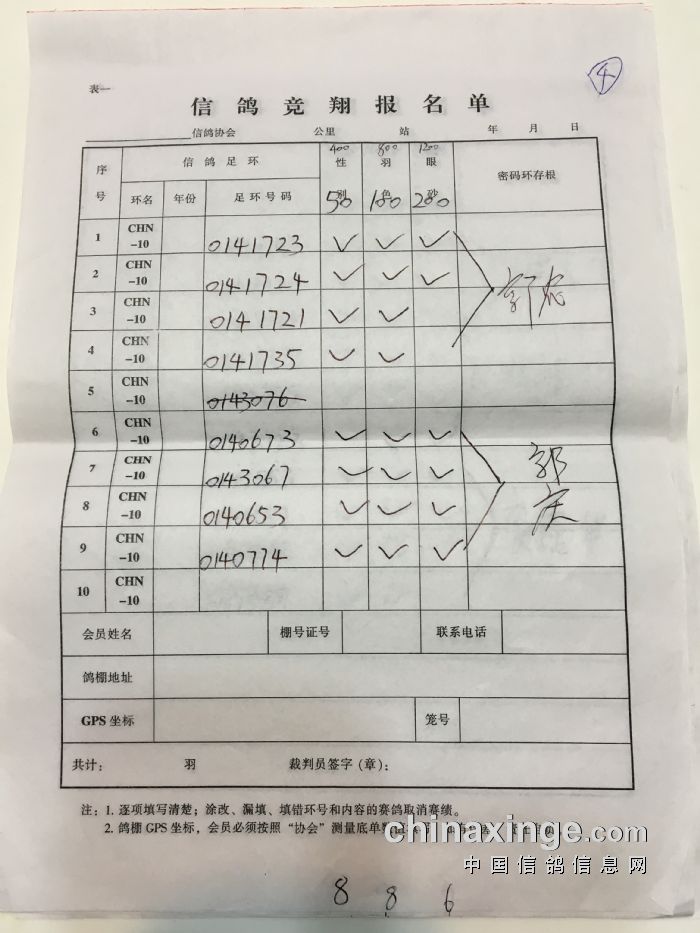 4
表一
信鸽竞翔报名单
信鸽协会 公里 站 年 月 日
序号 信鸽足环 性别 羽色 眼砂 密码环存根
400 800 1200
环名 年份 足环号码 50 100 200
1 CHN-10 0141723 ✓ ✓ ✓
2 CHN-10 0141724 ✓ ✓ ✓
3 CHN-10 0141721 ✓ ✓
4 CHN-10 0141735 ✓ ✓
5 CHN-10 0143076
6 CHN-10 0140673 ✓ ✓ ✓
7 CHN-10 0143067 ✓ ✓ ✓
8 CHN-10 0140653 ✓ ✓ ✓
9 CHN-10 0140774 ✓ ✓ ✓
10 CHN-10
会员姓名 棚号证号 联系电话
鸽棚地址
GPS坐标 笼号
共计： 羽 裁判员签字（章）：
注：1. 逐项填写清楚；涂改、漏填、填错环号和内容的赛鸽取消赛绩。
2. 鸽棚GPS坐标，会员必须按照“协会”测量底单
chinaxinge.com
中国信鸽信息网
8 8 6